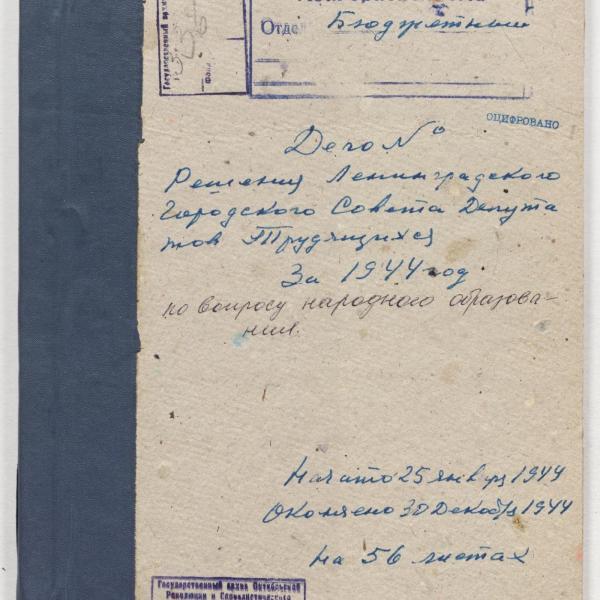 Государственный архив
Фонд
Отдел Бюджетный
ОЦИФРОВАНО
Дело №
Решения Ленинградского
Городского Совета Депута
тов Трудящихся
За 1944 год
по вопросу народного образова-
ния.
Начато 25 января 1944
Окончено 30 Декабря 1944
на 56 листах
Государственный архив Октябрьской
Революции и Социалистического